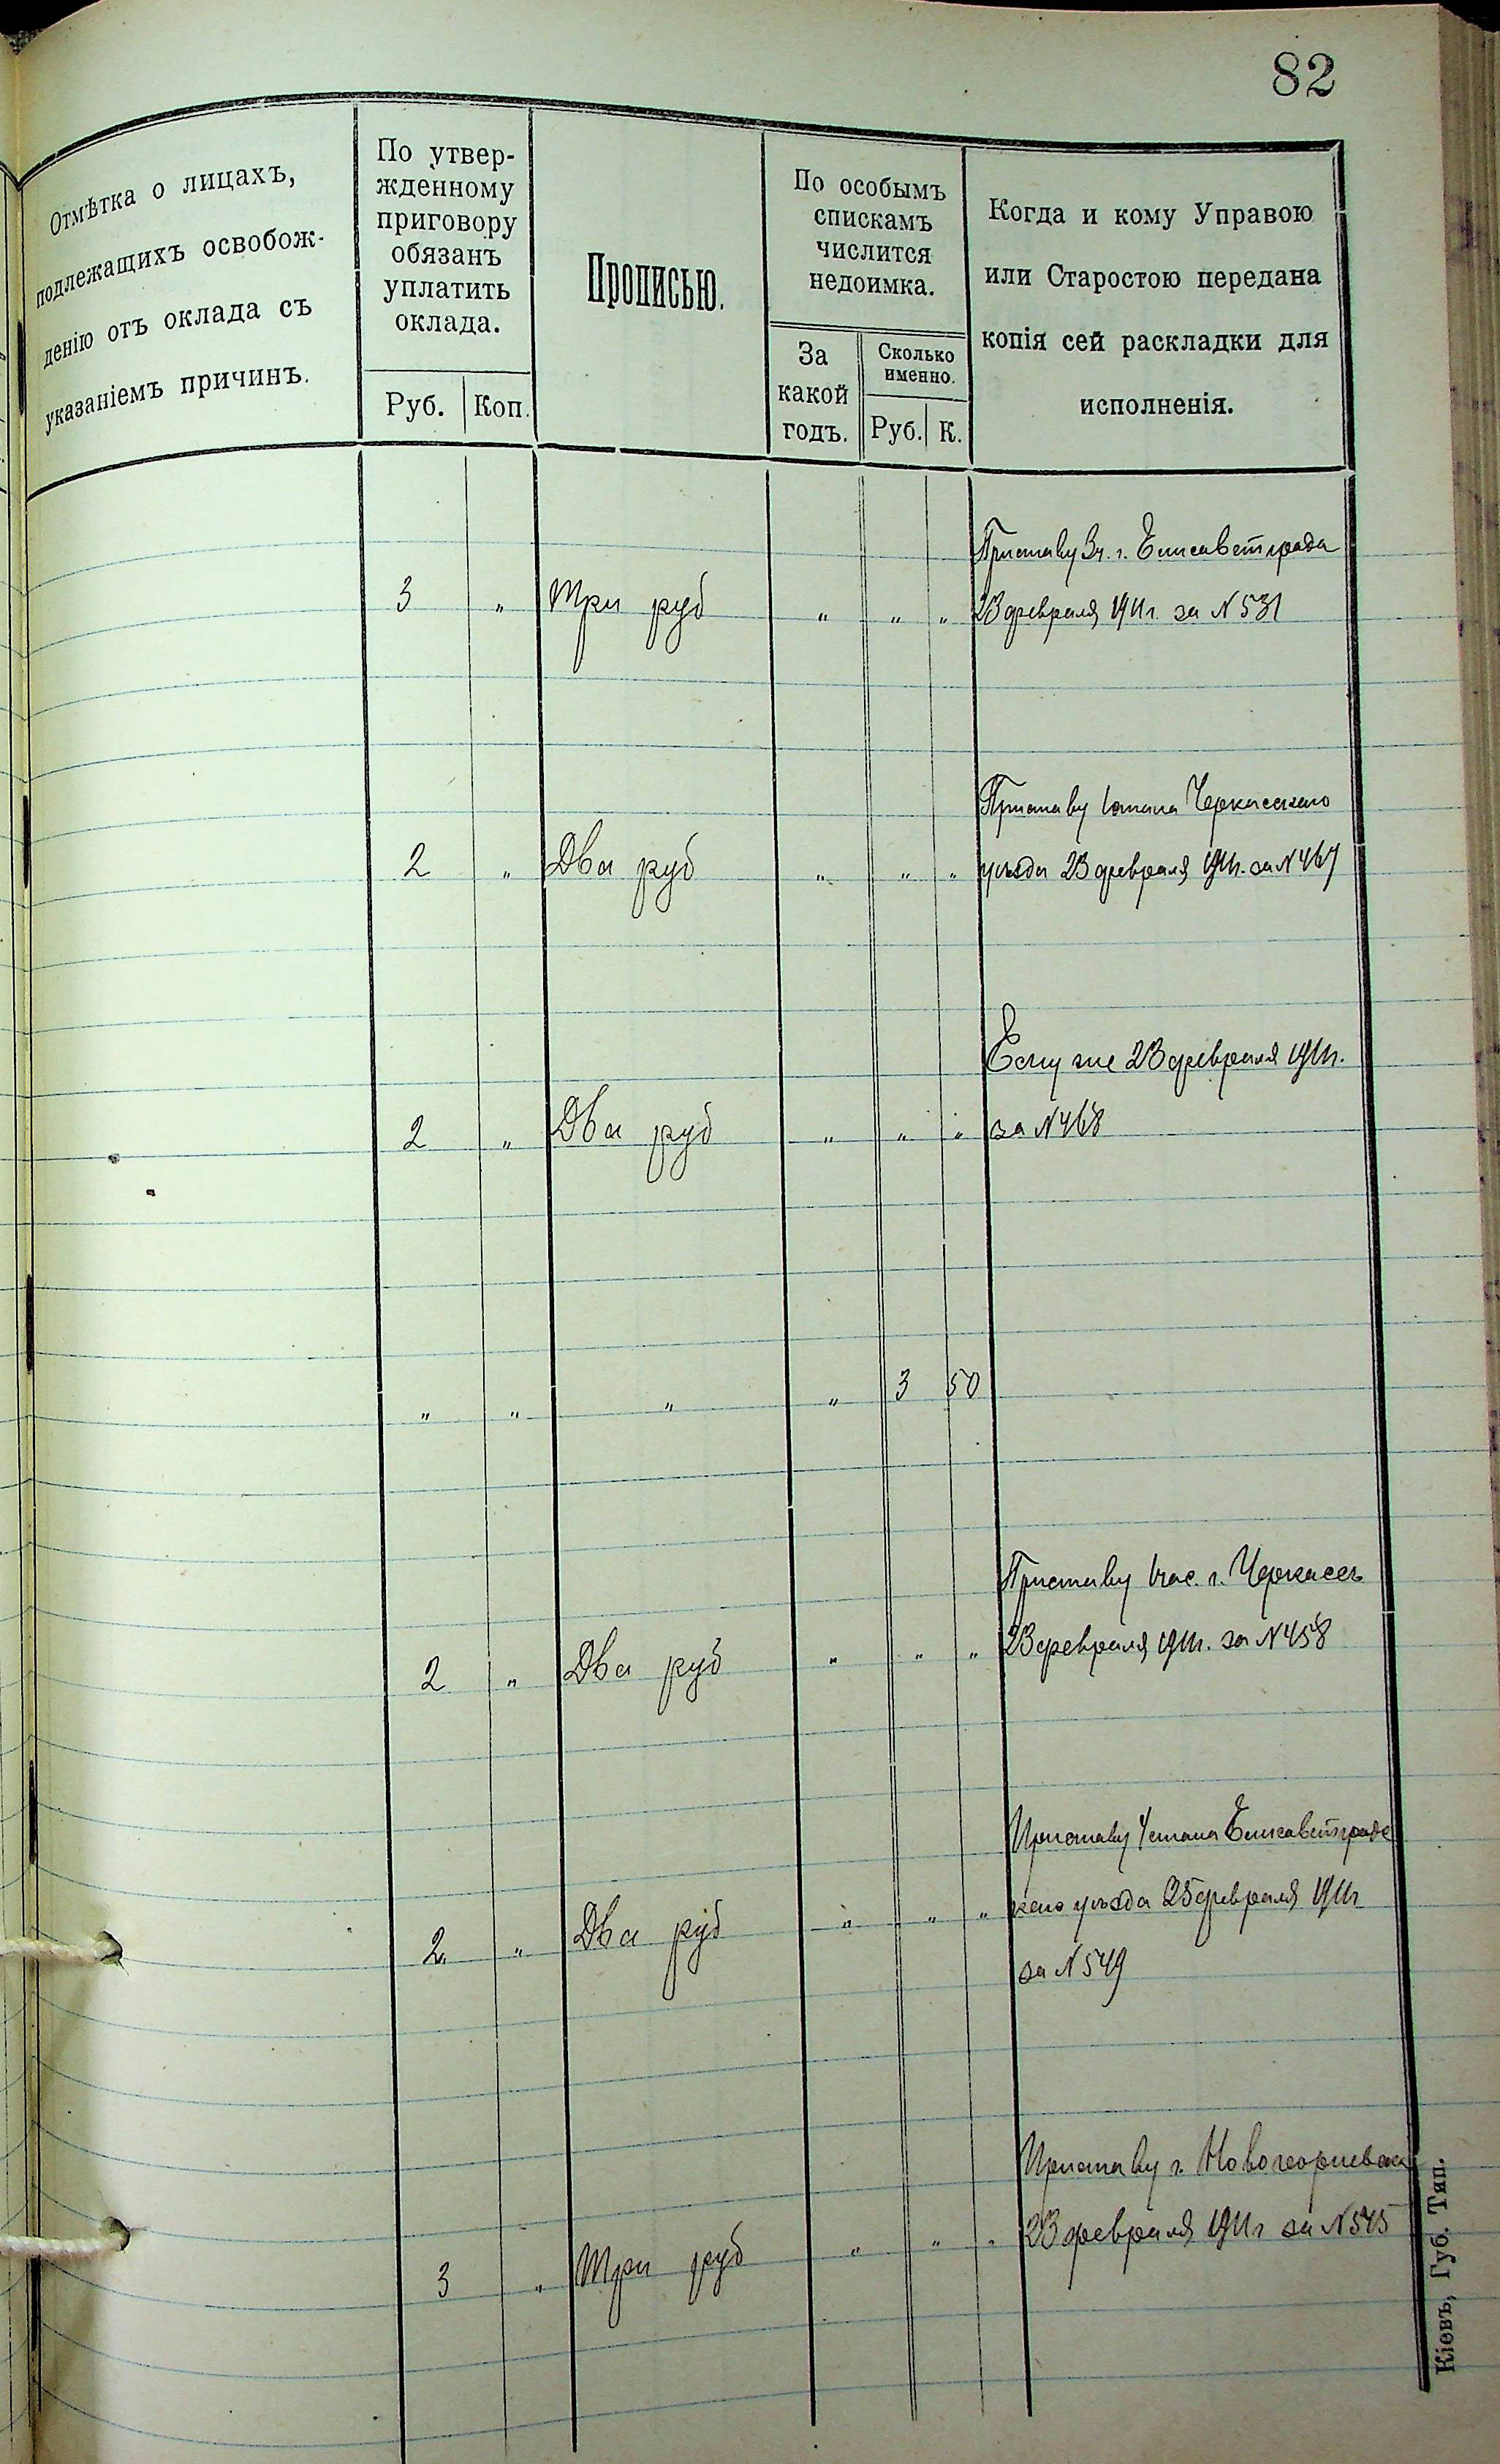 82
Отмѣтка о лицахъ,
подлежащихъ освобож-
денію отъ оклада съ
указаніемъ причинъ.
По утвер-
жденному
приговору
обязанъ
уплатить
оклада.
Руб. Коп.
Прописью.
По особымъ
спискамъ
числится
недоимка.
За
какой
годъ.
Сколько
именно.
Руб. К.
Когда и кому Управою
или Старостою передана
копія сей раскладки для
исполненія.
Приставу 3ч. г. Елисаветграда
3 „ Три руб „ „ „ 23 февраля 1911г. за N 531
Приставу 1 стана Черкасскаго
2 „ Два руб „ „ „ уѣзда 23 февраля 1911г. за N 467
Ему же 23 февраля 1911г.
2 „ Два руб „ „ „ за N 468
„ „ „ „ 3 50
Приставу 1 час. г. Черкассъ
2 „ Два руб „ „ „ 23 февраля 1911г. за N 458
Приставу 4 стана Елисаветградс
2 „ Два руб „ „ „ каго уѣзда 25 февраля 1911г
за N 549
Приставу г. Новогеоргіевска
3 „ Три руб „ „ „ 23 февраля 1911г за N 545
Кіевъ, Губ. Тип.